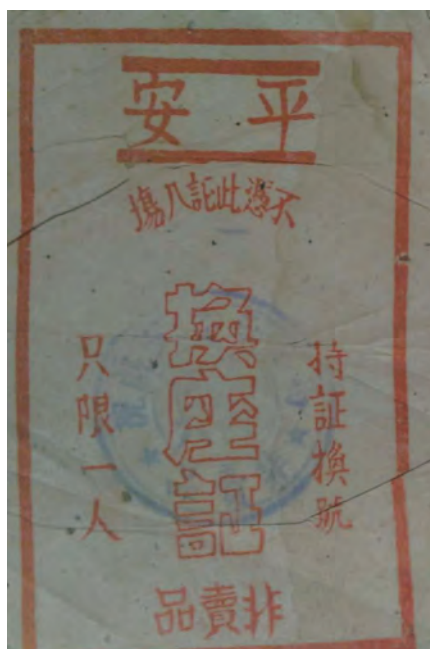 平安
不憑此証入塲
持証換號
換座証
只限一人
非賣品